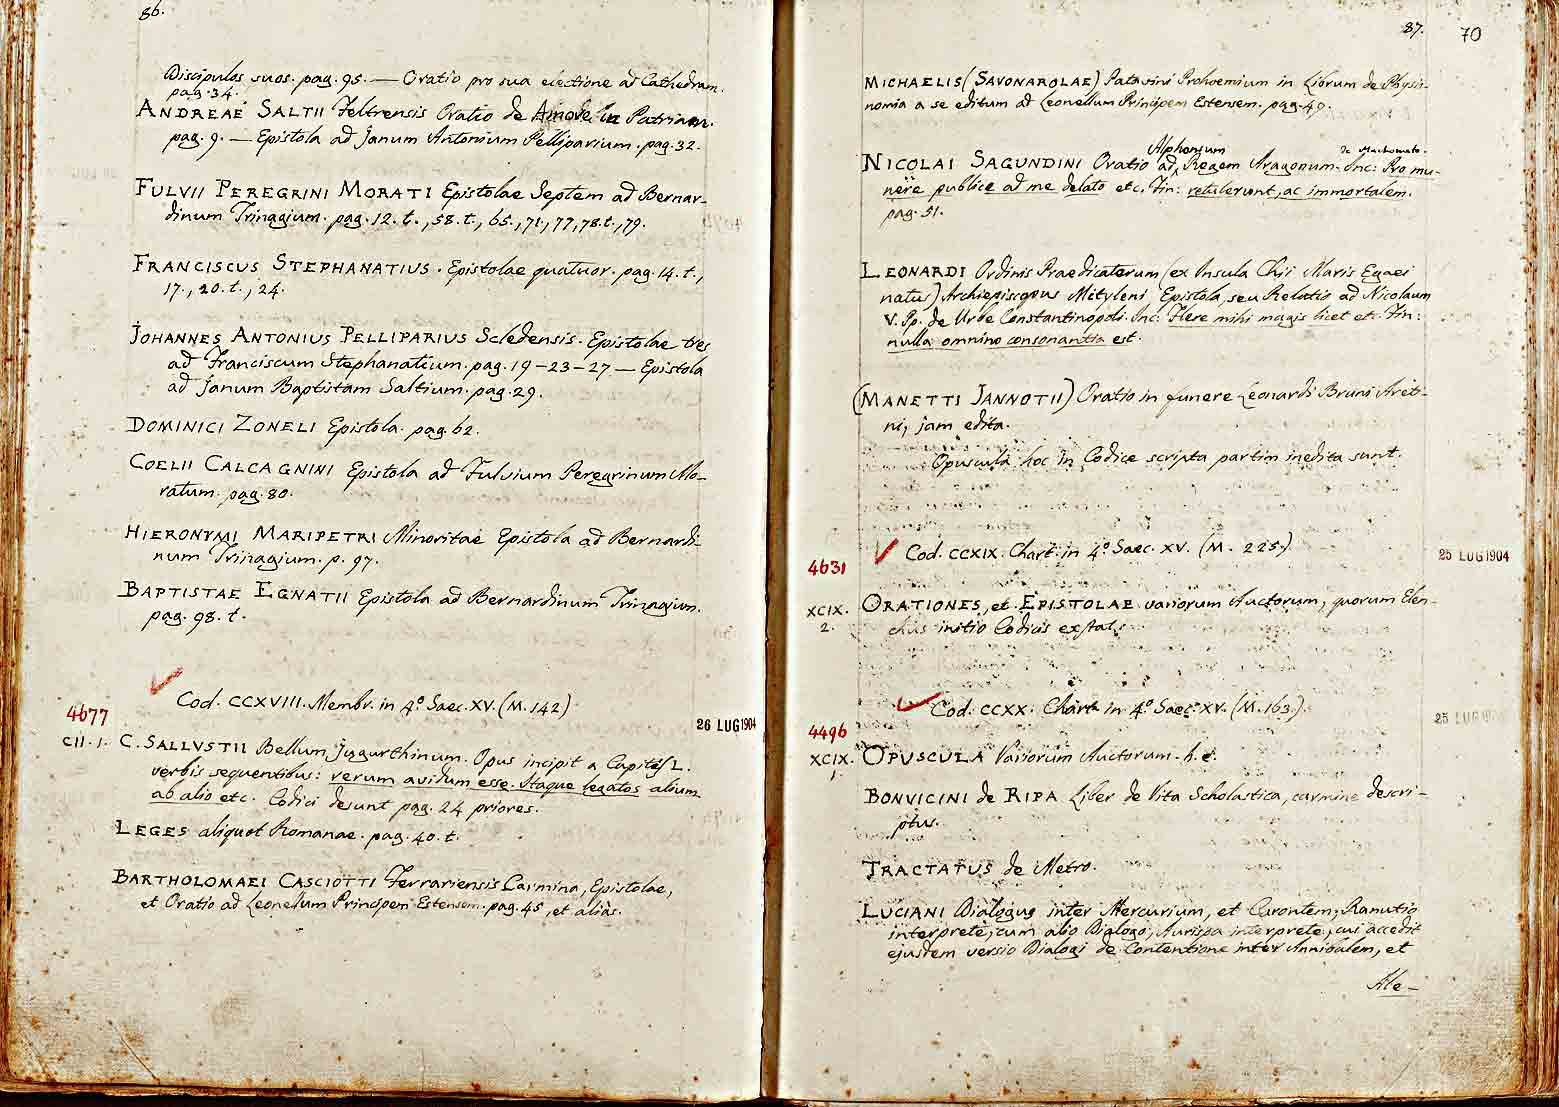 86.
Discipulos suos. pag. 95. — Oratio pro sua electione ad Cathedram.
pag. 34.
ANDREAE SALTII Feltrensis Oratio de Amore in Patriam.
pag. 9. — Epistola ad Janum Antonium Pelliparium. pag. 32.
FULVII PEREGRINI MORATI Epistolae Septem ad Bernar-
dinum Trinagium. pag. 12. t., 58. t., 65., 71., 77, 78. t., 79.
FRANCISCUS STEPHANATIUS. Epistolae quatuor. pag. 14. t.,
17., 20. t., 24.
JOHANNES ANTONIUS PELLIPARIUS Scledensis. Epistolae tres
ad Franciscum Stephanatium. pag. 19 – 23 – 27 — Epistola
ad Janum Baptistam Saltium. pag. 29.
DOMINICI ZONELI Epistola. pag. 62.
COELII CALCAGNINI Epistola ad Fulvium Peregrinum Mo-
ratum. pag. 80.
HIERONYMI MARIPETRI Minoritae Epistola ad Bernardi-
num Trinagium. p. 97.
BAPTISTAE EGNATII Epistola ad Bernardinum Trinagium.
pag. 98. t.
Cod. CCXVIII. Membr. in 4º Saec. XV. (M. 142)
4677
26 LUG 1904
CII. 1. C. SALLVSTII Bellum Jugurthinum. Opus incipit a Capite L.
verbis sequentibus: verum avidum esse. Itaque legatos alium
ab alio etc. Codici desunt pag. 24 priores.
LEGES aliquot Romanae. pag. 40. t.
BARTHOLOMAEI CASCIOTTI Ferrariensis Carmina, Epistolae,
et Oratio ad Leonellum Principem Estensem. pag. 45, et alias.
87. 70
MICHAELIS (SAVONAROLAE) Patavini Prohoemium in Librum de Physio-
nomia a se editum ad Leonellum Principem Estensem. pag. 49.
Alphonsum de Machometo.
NICOLAI SAGUNDINI Oratio ad Regem Aragonum. Inc: Pro mu-
nere publice ad me delato etc. Fin: retulerunt, ac immortalem.
pag. 51.
LEONARDI Ordinis Praedicatorum (ex Insula Chii Maris Egaei
natus) Archiepiscopus Mityleni Epistola, seu Relatio ad Nicolaum
V. Pp. de Urbe Constantinopoli. Inc: Flere mihi magis licet etc. Fin:
nulla omnino consonantia est.
(MANETTI JANNOTII) Oratio in funere Leonardi Bruni Areti-
ni, jam edita.
Opuscula hoc in Codice scripta partim inedita sunt.
Cod. CCXIX. Chart. in 4º Saec. XV. (M. 225.)
4631
25 LUG 1904
XCIX. ORATIONES, et EPISTOLAE variorum Auctorum, quorum Elen-
2. chus initio Codicis exstat.
Cod. CCXX. Chart. in 4º Saec. XV. (M. 163.)
4496
25 LUG 1904
XCIX. OPUSCULA Variorum Auctorum. h. e.
1.
BONVICINI de RIPA Liber de Vita Scholastica, carmine descri-
ptus.
TRACTATUS de Metro.
LUCIANI Dialogus inter Mercurium, et Carontem, Ranutio
interprete, cum alio Dialogo, Aurispa interprete, cui accedit
ejusdem versio Dialogi de Contentione inter Annibalem, et
Ale-